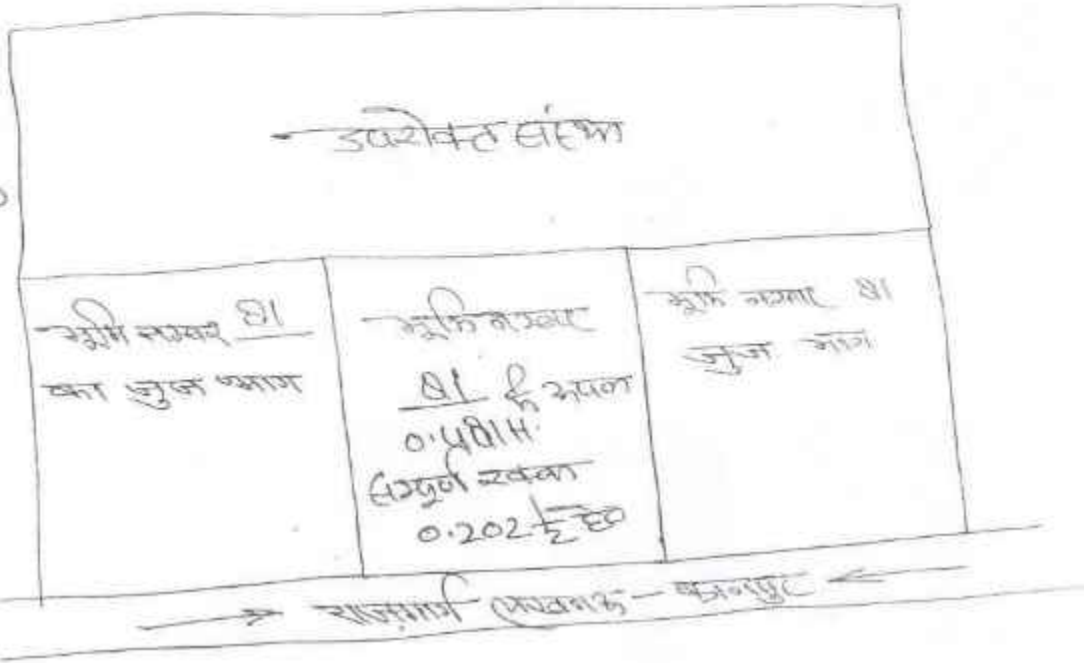 उपरोक्त संस्था
भूमि नम्बर 81
का जुज भाग
भूमि नम्बर
81
0.481H.
सम्पूर्ण रकबा
0.202
भूमि नम्बर 81
जुज भाग
राजमार्ग लखनऊ - कानपुर